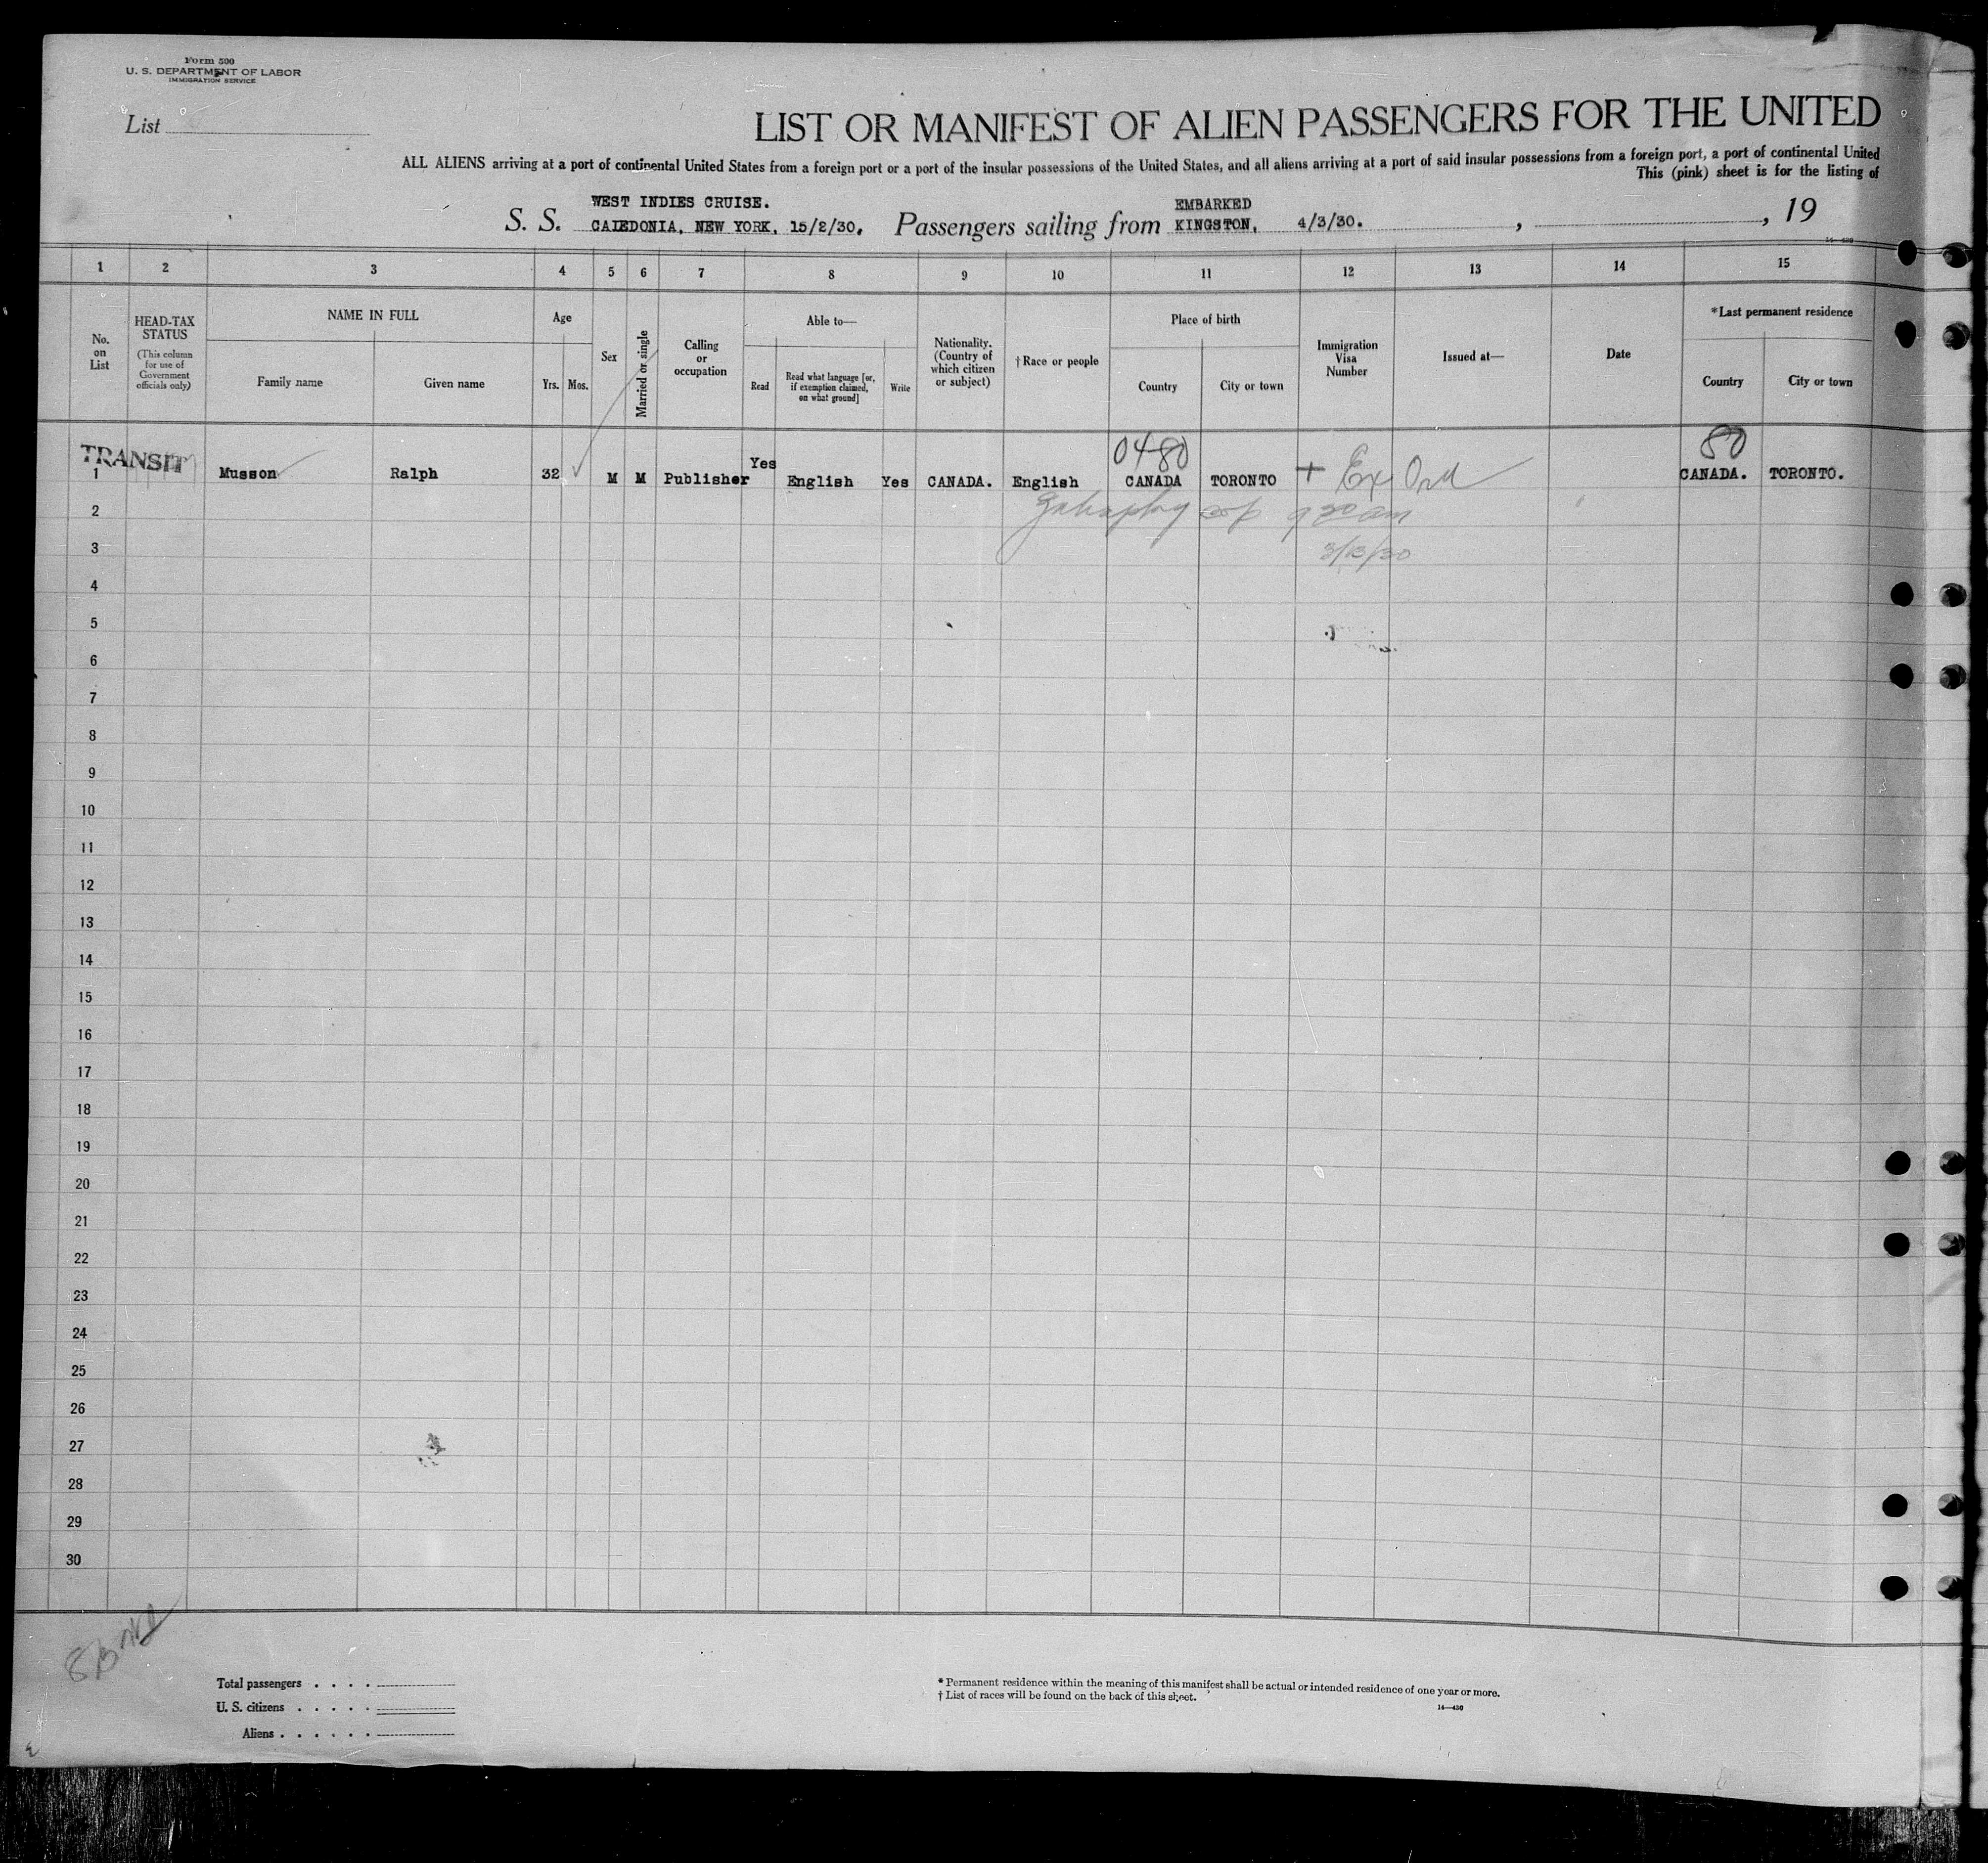 Form 500
U. S. DEPARTMENT OF LABOR
IMMIGRATION SERVICE
List
LIST OR MANIFEST OF ALIEN PASSENGERS FOR THE UNITED
ALL ALIENS arriving at a port of continental United States from a foreign port or a port of the insular possessions of the United States, and all aliens arriving at a port of said insular possessions from a foreign port, a port of continental United
This (pink) sheet is for the listing of
WEST INDIES CRUISE. EMBARKED
S. S. CALEDONIA, NEW YORK, 15/2/30. Passengers sailing from KINGSTON, 4/3/30. , , 19
14—430
1 2 3 4 5 6 7 8 9 10 11 12 13 14 15
No. on List
HEAD-TAX STATUS
(This column for use of Government officials only)
NAME IN FULL
Family name Given name
Age
Yrs. Mos.
Sex
Married or single
Calling or occupation
Able to—
Read
Read what language [or, if exemption claimed, on what ground]
Write
Nationality. (Country of which citizen or subject)
†Race or people
Place of birth
Country City or town
Immigration Visa Number
Issued at—
Date
*Last permanent residence
Country City or town
TRANSIT
0480 80
1 Musson Ralph 32 M M Publisher Yes English Yes CANADA. English CANADA TORONTO + Ex Ord CANADA. TORONTO.
2
3
4
5
6
7
8
9
10
11
12
13
14
15
16
17
18
19
20
21
22
23
24
25
26
27
28
29
30
Total passengers . . . .
U. S. citizens . . . . .
Aliens . . . . . .
* Permanent residence within the meaning of this manifest shall be actual or intended residence of one year or more.
† List of races will be found on the back of this sheet.
14—430